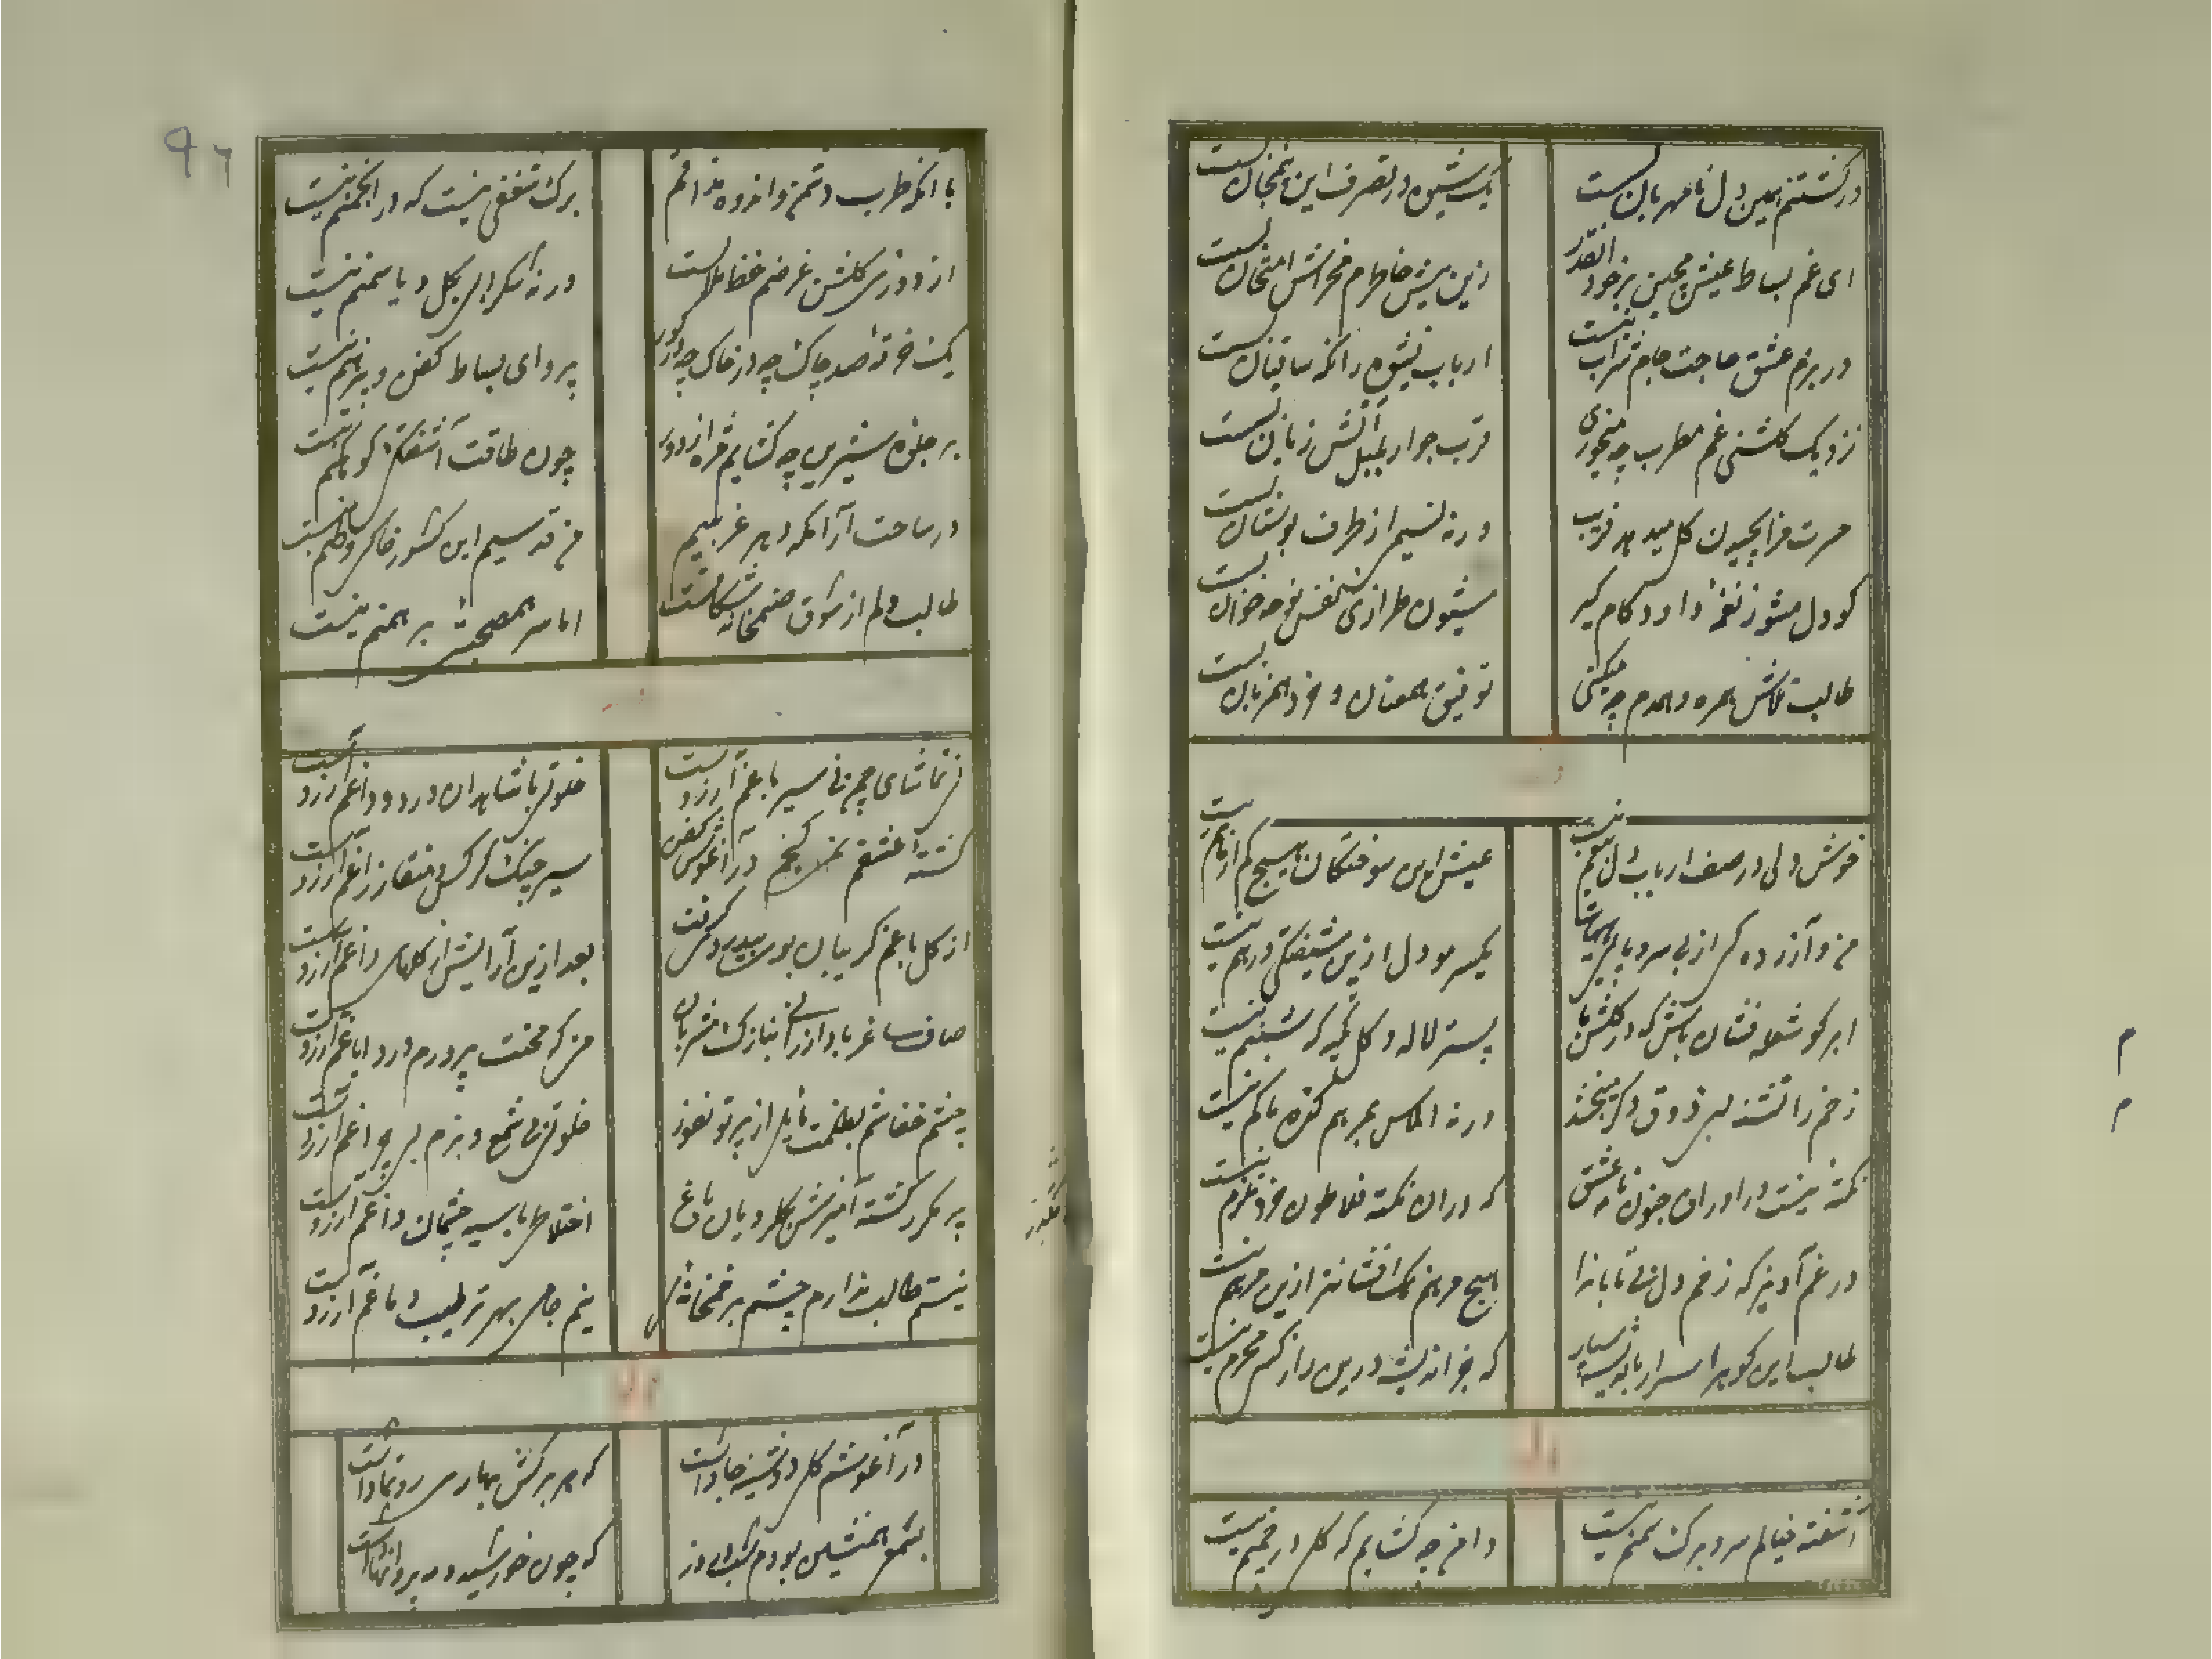 در کشتنم همین دل نامهربان بست
یک شیوه در تصرف این
ای غم بساط عیش مچین بر خود اینقدر
زین بیش خاطرم مخراش امتحان بست
در بزم عشق حاجت جام شراب نیست
ارباب نشوه را نگه ساقیان بست
نزدیک گلشنی غم مطرب چه میخوری
قرب جوار بلبل آتش زبان بست
حسرت مرا بچیدن گل میدهد فریب
ورنه نسیم از طرف بوستان بست
گو دل مشو ز نغمه داود کام گیر
شیون طرازی نفس نوحه خوان بست
طالب تلاش همره و همدم چه میکنی
توفیق همعنان و خرد همزبان بست
خوش دلی در صف ارباب دل
عیش این سوختگان هیچ کم از ماتم نیست
من و آزردگی از بی سر و پایی هیهات
یکسر مو دل ازین شیفتگی درهم نیست
ابر گو شعله فشان باش که در گلشن ما
بستر لاله و گل تکیه گه شبنم نیست
زخم را تشنه لبی ذوق دگر میبخشد
ورنه الماس بهر کوزه ما کم نیست
نکته نیست در اوراق جنون نامه عشق
که در آن نکته فلاطون خرد ملزم نیست
در غم آویز که زخم دل بی تابانرا
هیچ مرهم نمک افشانتر ازین مرهم نیست
طالب این گوهر اسرار باندیشه سپار
که جز اندیشه درین راز کسی محرم نیست
آشفته خیالم سر و برگ سخنم نیست
دامن چه گشایم که گل در چمنم نیست
با آنکه طرب دشمن و اندوه مذاقم
برگ شغفی نیست که در انجمنم نیست
از دوزی گلشن غرضم حفظ است
ورنه سر گل و یاسمنم نیست
یک خرقه صد چاک چه در خاک چه در گور
پروای بساط کفن و پیرهنم نیست
بر جلوه شیرین چه گشایم مژه از دور
چون طاقت آشفتگی کوهکنم نیست
در ساحت آرامگه دهر غریبیم
من قدسیم این کشور خاکی وطنم نیست
طالب دلم از شوق صنمخانه شکافست
اما سر همصحبتی برهمنم نیست
نی تماشای چمن نی سیر باغم آرزوست
خلوتی با شاهدان درد و داغم آرزوست
کشته عشقم نمی گنجم در آغوش کفن
سیر چنگ کرکس و منقار زاغم آرزوست
از گل باغم گریبان بوی بیدردی گرفت
بعد ازین آرایش از گلهای داغم آرزوست
صاف ساغر باد ارزانی بنازک مشربان
من که محنت پرورم درد ایاغم آرزوست
چشم خفاشم بظلمت مایل از پرتو نفور
خلوتی بی شمع و بزم بی چراغم آرزوست
پر مکرر گشته آمیزش بگلرویان باغ
اختلاطی با سیه چشمان داغم آرزوست
نیستم طالب ندارم چشم بر خمخانه
نیم جامی بهر ترطیب دماغم آرزوست
در آغوشم گل دوشینه جا داشت
که هر برگش بهاری رونما داشت
بشمع همنشین بودم شب و روز
که چون خورشید و مه پروانها داشت